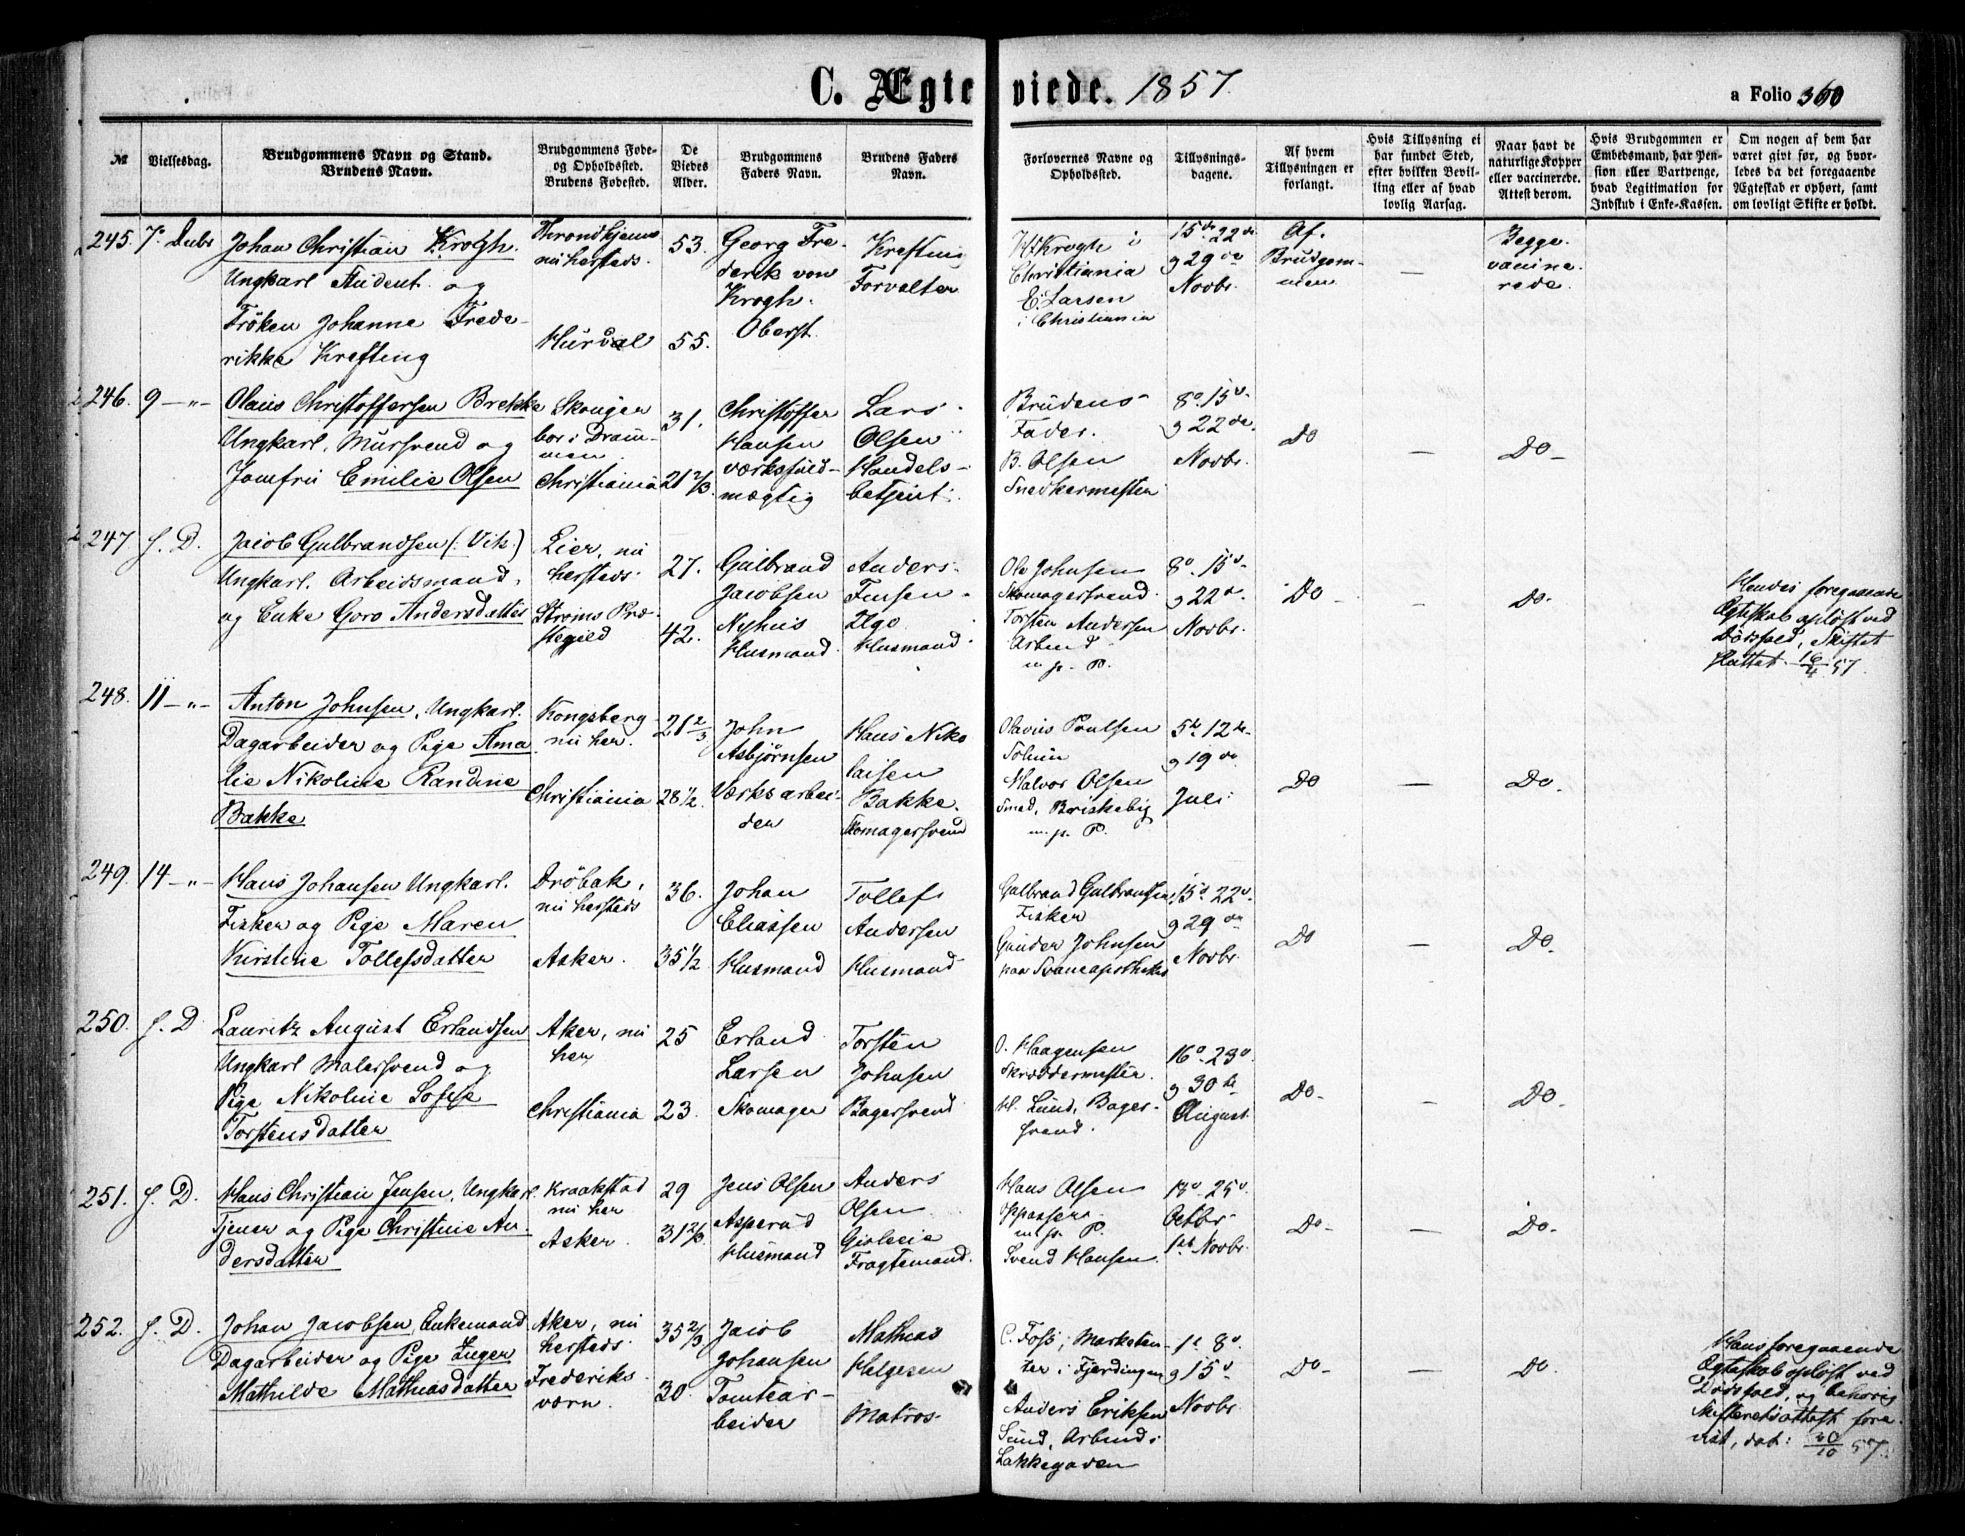 C. Ægteviede. 1857.
a Folio 360
№
Vielsesdag.
Brudgommens Navn og Stand.
Brudens Navn.
Brudgommens Føde-
og Opholdssted.
Brudens Fødested.
De
Viedes
Alder.
Brudgommens
Faders Navn.
Brudens Faders
Navn.
Forlovernes Navne og
Opholdssted.
Tillysnings-
dagene.
Af hvem
Tillysningen er
forlangt.
Hvis Tillysning ei
har fundet Sted,
efter hvilken Bevil-
ling eller af hvad
lovlig Aarsag.
Naar havt de
naturlige Kopper
eller vaccinerede.
Attest derom.
Hvis Brudgommen er
Embedsmand, har Pen-
sion eller Vartpenge,
hvad Legitimation for
Indskud i Enke-Kassen.
Om nogen af dem har
været gift før, og hvor-
ledes da det foregaaende
Ægteskab er ophørt, samt
om lovligt Skifte er holdt.
245. 7de Decbr
Johan Christian Krogh.
Ungkarl Student og
Frøken Johanne Frede-
rikke Krefting
Throndhjem
nu hersteds.
Hurdal
53.
55.
Georg Fre-
derik von
Krogh.
Oberst.
Krefting
Forvalter
Krogh i
Christiania
E. Larsen
i Christiania
15de 22de
g 29de
Novbr.
Af.
Brudgom-
men
—
Begge
vaccine-
rede.
246. 9 -"-
Olaus Christoffersen Brekke
Ungkarl, Mursvend og
Jomfru Emilie Olsen
Skouger
bor i Dram-
men
Christiania
31.
21 2/3.
Christoffer
Hansen
værksfuld-
mægtig
Lars
Olsen
Handels-
betjent.
Brudens
Fader.
B. Olsen
Snedkermester
8de 15de
g 22de
Novbr.
Do
—
Do -
247 s. D.
Jacob Gulbrandsen (: Vik:)
Ungkarl. Arbeidsmand,
og Enke Goro Andersdatter
Lier, nu
hersteds.
Strøms Præ-
stegjeld
27.
42.
Gulbrand
Jacobsen
Nyhus
Husmand.
Anders
Husmand.
Ole Johnsen
Skomagersvend.
Torsten Andersen
Arbmd
m. p. P.
8de 15de
g 22de
Novbr.
Do -
—
Do.
Hendes foregaaende
Ægteskab opløst ved
Dødsfald, Skiftet
sluttet 16/4 57.
248. 11 -"-
Anton Johnsen, Ungkarl.
Dagarbeider og Pige Ama
lie Nikoline Randine
Bakke
Kongsberg
nu her.
Christiania
21 2/3
28 1/2.
John
Asbjørnsen
Værksarbei-
der
Hans Niko
laisen
Bakke.
Skomagersvend
Olavus Poulsen
Halvor Olsen
Smed, Briskebÿ
m. p. P.
5te 12te
g 19de
Juli
Do
—
Do.
249. 14 -"-
Hans Johansen Ungkarl.
Fisker og Pige Maren
Kirstine Tollefsdatter
Drøbak,
nu hersteds
Asker.
36.
35 1/2
Johan
Eliassen
Husmand
Tollef
Andersen
Husmand
Gulbrand Gulbrandsen
Fisker
Gunder Johnsen
paa Svaneapotheket
15de 22de
g 29de
Novbr.
Do
—
Do.
250. s. D
Lauritz August Erlandsen
Ungkarl Malersvend og
Pige Nikoline Sofie
Torstensdatter
Aker, nu
her
Christiania
25
23.
Erland
Larsen
Skomager
Torsten
Johnsen
Bagersvend
O. Haagensen
Skræddermester.
H. Lund, Bager-
svend.
16de 23de
g 30te
August
Do -
—
Do -
251. s. D.
Hans Christian Jensen, Ungkarl.
Tjener og Pige Christine An
dersdatter
Kraakstad
nu her
Asker.
29
31 2/3
Jens Olsen
Asperud
Husmand
Anders
Olsen
Fragtemand.
Hans Olsen
Oppasser
m. p. P.
Svend Hansen.
18de 25de
Octbr
1ste Novbr.
Do -
—
Do.
252. s. D.
Johan Jacobsen, Enkemand
Dagarbeider og Pige Inger
Mathilde Mathiasdatter
Aker, nu
hersteds.
Frederiks-
værn.
35 2/3
30.
Jacob
Johansen
Tomtear-
beider
Mathias
Helgesen
Matros
C. Foss, Marketen-
ter i Fjerdingen
Anders Eriksen
Sund, Arbmd i
Lakkegaden
1ste 8de
g 15de
Novbr.
Do -
—
Do.
Hans foregaaende
Ægteskab opløst ved
Dødsfald, og behørig
Skifteretsattest fore-
vist, dat: 20/10 57.